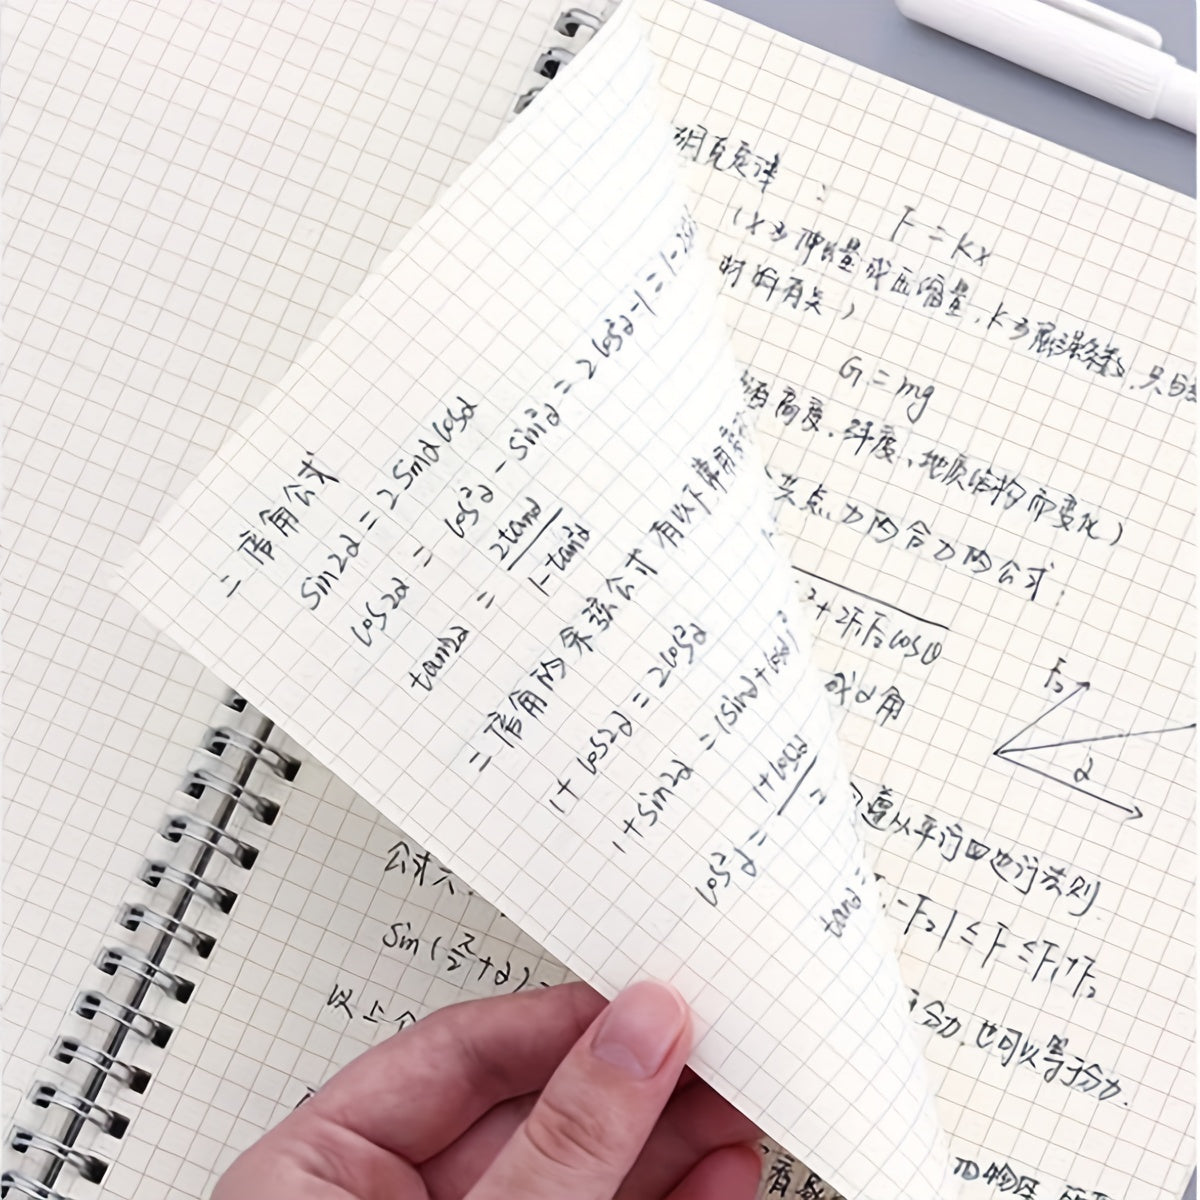 二倍角公式
sin2α = 2sinαcosα
cos2α = cos²α - sin²α = 2cos²α-1 = 1-2
tan2α = 2tanα / 1-tan²α
二倍角的余弦公式 有以下常用
1+cos2α = 2cos²α
1+sin2α = (sinα+cosα)²
cos²α = 1+cos2α / 2
tanα =
胡克定律: F=kx
(x为伸长量或压缩量,k为劲度系数,只与
材料有关)
G=mg
高度、纬度、地质结构而变化)
共点力的合力的公式:
²+2F₁F₂cosθ
成α角
F₂
α
遵从平行四边行法则.
-F₂|≤F≤F₁+F₂
分力,也可以等于分力.
公式六
sin(π/2+α)=